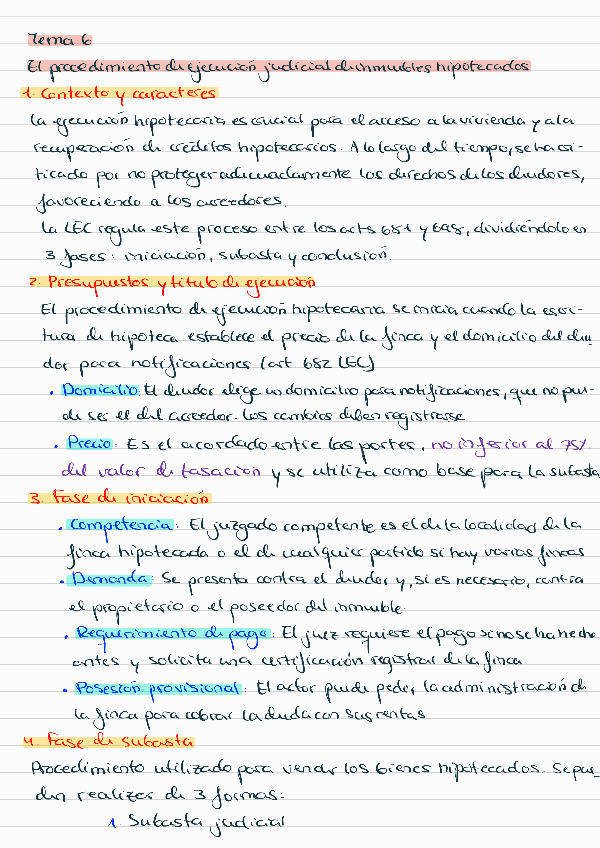 Tema 6
El procedimiento de ejecución judicial de inmuebles hipotecados
1. Contexto y caracteres
La ejecución hipotecaria es crucial para el acceso a la vivienda y a la
recuperación de créditos hipotecarios. A lo largo del tiempo, se ha cri-
ticado por no proteger adecuadamente los derechos de los deudores,
favoreciendo a los acreedores.
La LEC regula este proceso entre los arts 681 y 698, dividiéndolo en
3 fases: iniciación, subasta y conclusión.
2. Presupuestos y título de ejecución
El procedimiento de ejecución hipotecaria se inicia cuando la escri-
tura de hipoteca establece el precio de la finca y el domicilio del deu-
dor para notificaciones (art 682 LEC)
• Domicilio: El deudor elige un domicilio para notificaciones, que no pue-
de ser el del acreedor. Los cambios deben registrarse
• Precio: Es el acordado entre las partes, no inferior al 75%
del valor de tasación y se utiliza como base para la subasta
3. Fase de iniciación
• Competencia: El juzgado competente es el de la localidad de la
finca hipotecada o el de cualquier partido si hay varias fincas
• Demanda: Se presenta contra el deudor y, si es necesario, contra
el propietario o el poseedor del inmueble.
• Requerimiento de pago: El juez requiere el pago si no se ha hecho
antes y solicita una certificación registral de la finca
• Posesión provisional: El actor puede pedir la administración de
la finca para cobrar la deuda con sus rentas
4. Fase de subasta
Procedimiento utilizado para vender los bienes hipotecados. Se pue-
den realizar de 3 formas:
1. Subasta judicial